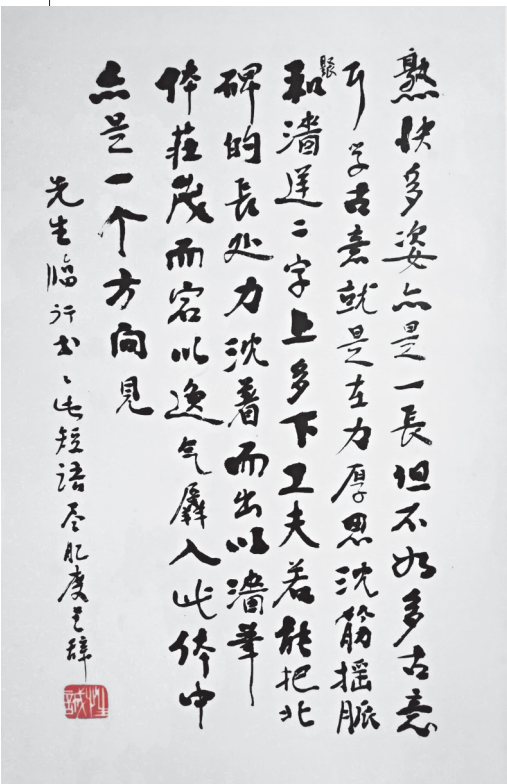 熟快多姿亦是一長但不如多古意
耳学古意就是在力厚思沈筋摇脈
張
和濇遅二字上多下工夫若能把北
碑的長处力沈著而出以濇筆
体莊茂而宕以逸气羼入此体中
亦是一个方向見
先生临行书、此短語尽肊度之辞